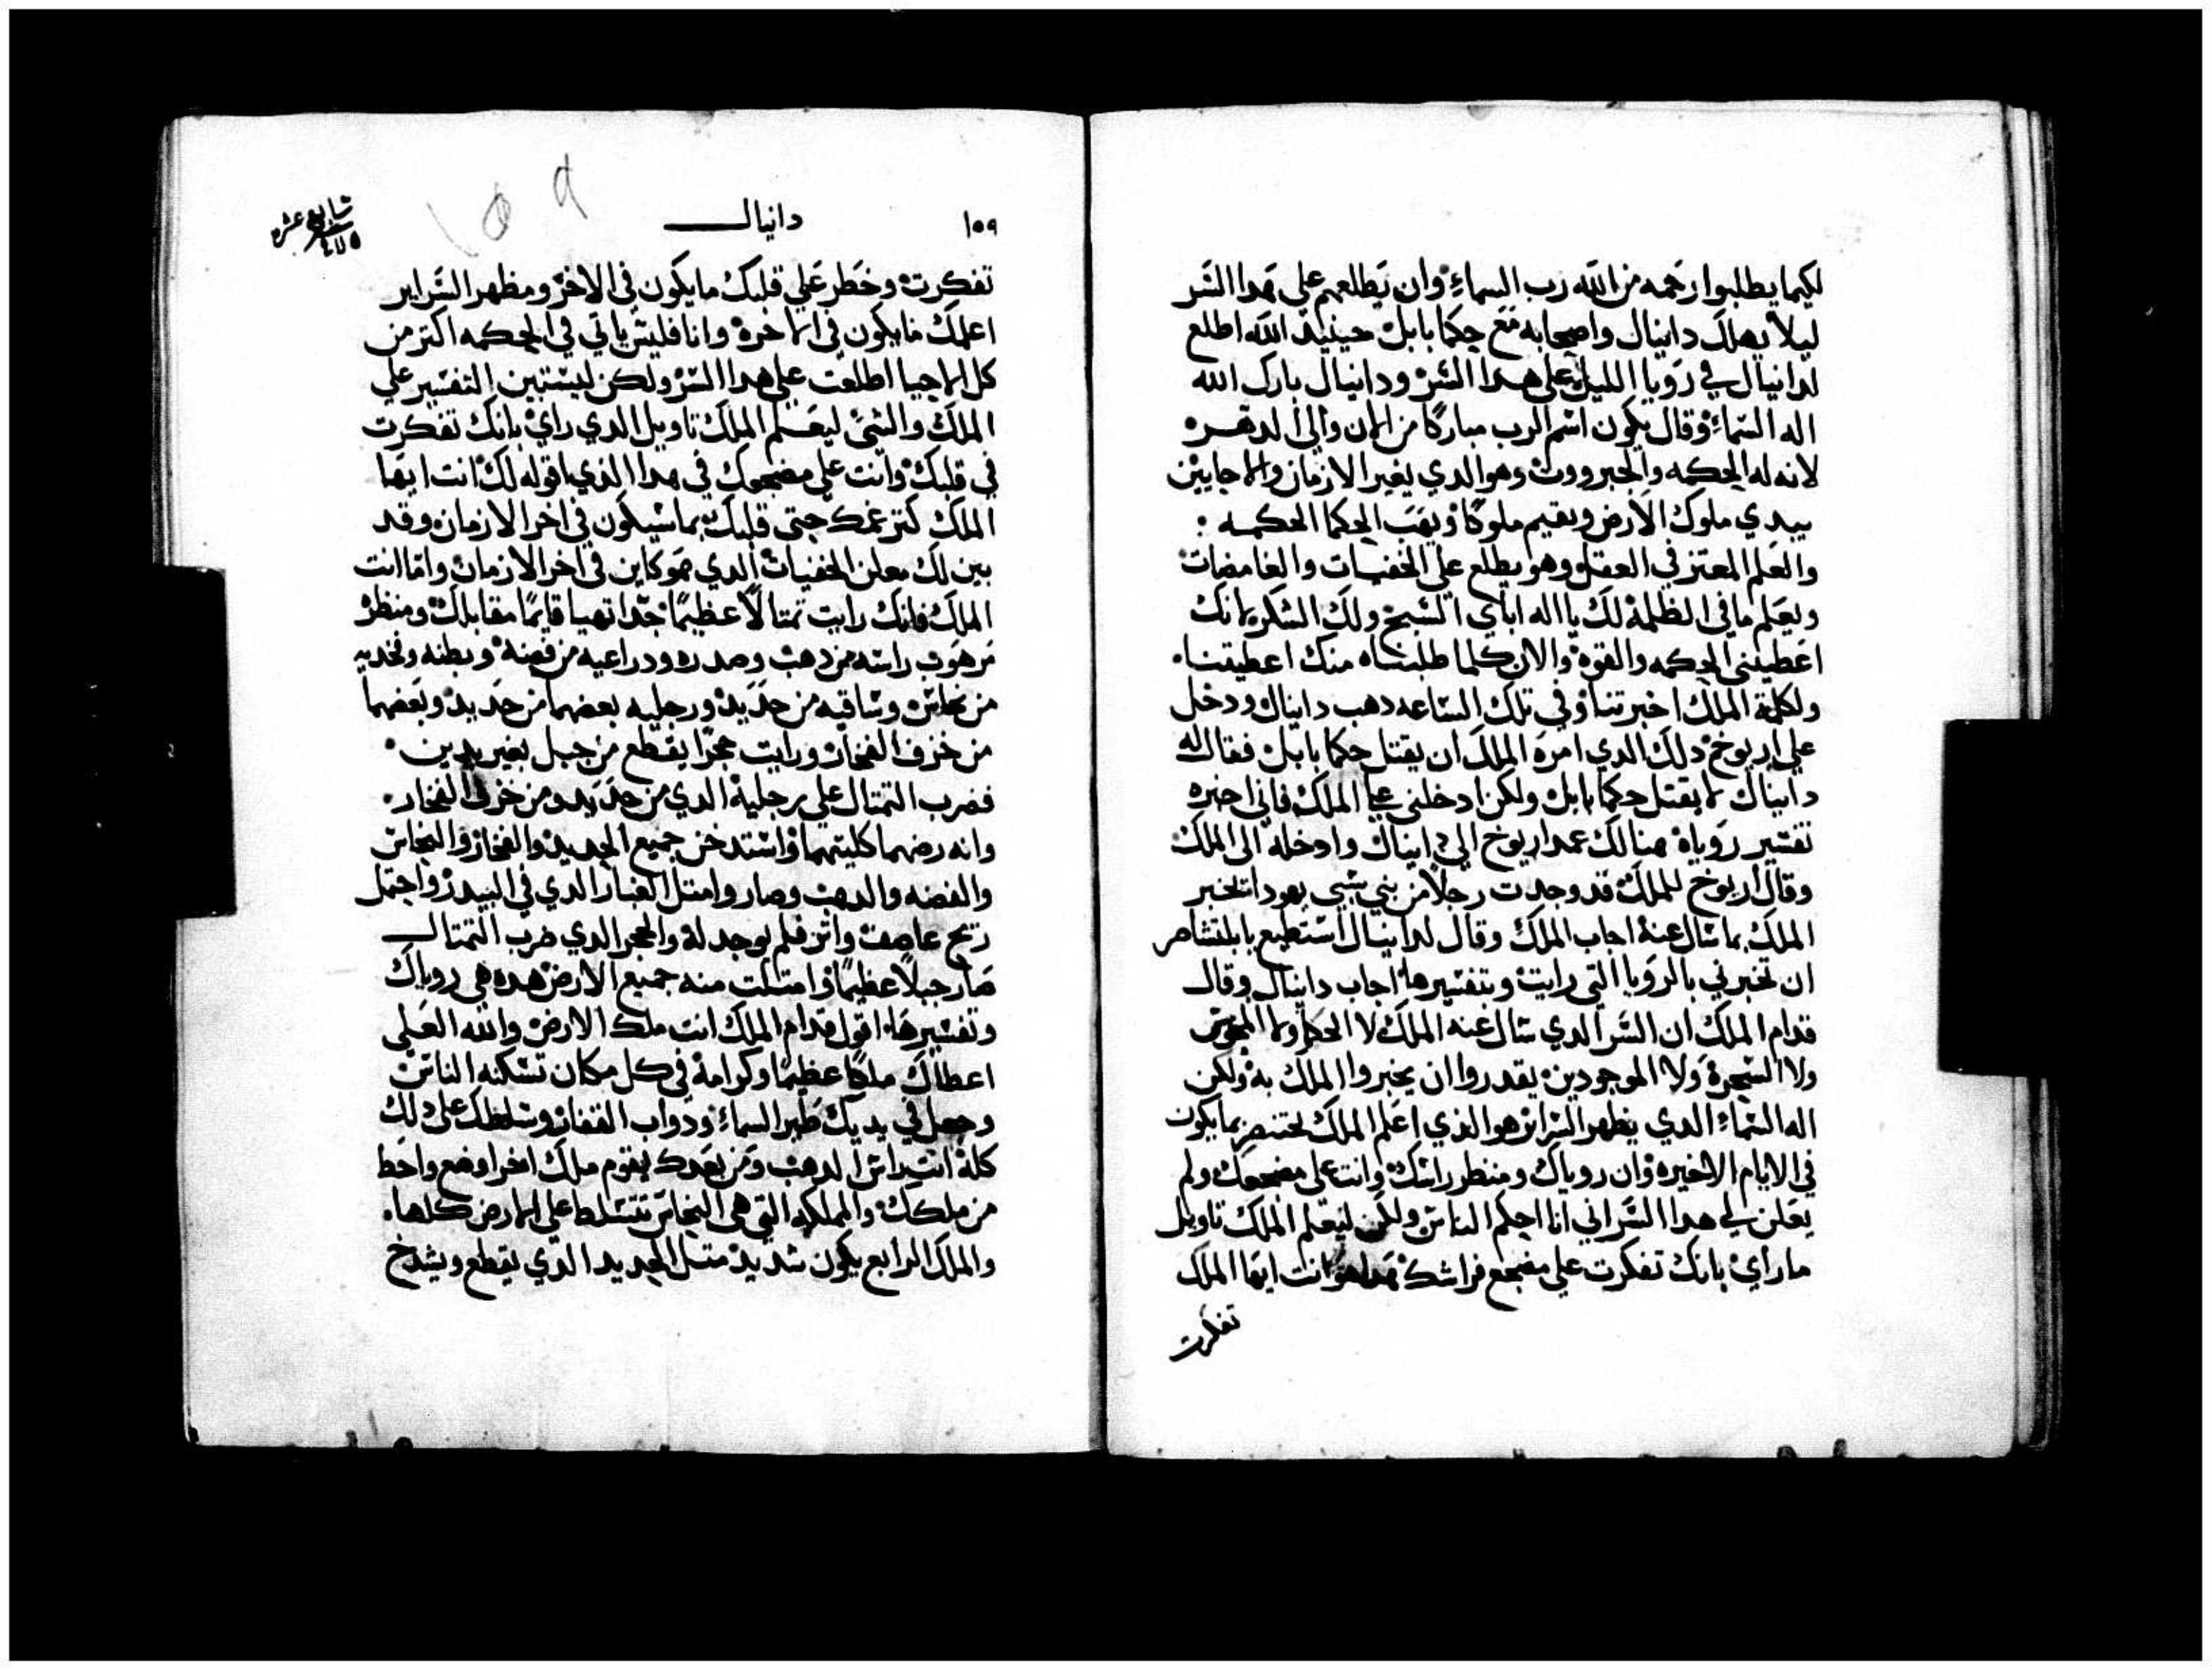 لكيما يطلبوا رحمه من الله رب السماء وان يطلعهم على هدا السر
ليلا يهلك دانيال واصحابه مع حكما بابل حينيد الله اطلع
لدانيال في رويا الليل على هدا السر ودانيال بارك الله
اله السماء وقال يكون اسم الرب مباركا من الان والى الدهر
لانه له الحكمه والجبرووت وهو الدي يغير الازمان والاحايين
يبدي ملوك الارض ويقيم ملوكا ويهب الحكما الحكمه :
والعلم المعتز في العقل وهو يطلع على الخفيات والغامضات
ويعلم ما في الظلمة لك يا اله اباي اسبح ولك اشكر لانك
اعطيتني الحكمه والقوة والان كلما طلبناه منك اعطيتنا
ولكلمة الملك اخبرتنا وفي تلك الساعه دهب دانيال ودخل
على اريوخ دلك الدي امره الملك ان يقتل حكما بابل فقال له
دانيال لا يقتل حكما بابل ولكن ادخلني على الملك فاني اخبره
تفسير روياه هنالك عمد اريوخ الى دانيال وادخله الى الملك
وقال اريوخ للملك قد وجدت رجلا من بني سبي يهودا تخبر
الملك بما سال عنه اجاب الملك وقال لدانيال استطيع يا بلتشاصر
ان تخبرني بالرويا التي رايت وبتفسيرها اجاب دانيال وقال
قدام الملك ان السر الدي سال عنه الملك لا الحكما ولا المجوس
ولا السحرة ولا الموجودين يقدروا ان يخبروا الملك به ولكن
اله السماء الدي يظهر السراير هو الذي اعلم الملك بختنصر بما يكون
في الايام الاخيره وان روياك ومنظر راسك وانت على مضجعك ولم
يعلن لي هدا السر اني انا احكم الناس ولكن ليعلم الملك تاويل
ما راي بانك تفكرت على مضجع فراشك هدا هو انت ايها الملك
تفكرت
١٥٩
دانيال
تفكرت وخطر على قلبك ما يكون في الاخر ومظهر السراير
اعلمك ما يكون في الاخرة وانا فليس ياتي في الحكمه اكتر من
كل الاحيا اطلعت على هدا السر ولكن ليستبين التفسير على
الملك والشى ليعلم الملك تاويل الدي راي بانك تفكرت
في قلبك وانت على مضجعك في هدا الذي اقوله لك انت ايها
الملك كتر عمك حتى قلبك بما سيكون في اخر الازمان وقد
بين لك معلن الخفيات الدي هو كاين في اخر الازمان واما انت
الملك فانك رايت تمتالا عظيما جدا تهيا قايما مقابلك ومنظر
مرهوب راسه من دهب وصدره ودراعيه من فضة وبطنه وفخديه
من نحاس وساقيه من حديد ورجليه بعضهما من حديد وبعضهما
من خزف الفخار ورايت حجرا يقطع من جبل بغير يدين
فضرب التمتال على رجلية الدي من حديد ومن خزف الفخار
وانه رضهما كليتهما واستدخن جميع الحديد والفخار والنحاس
والفضه والدهب وصاروا متل الغبار الدي في البيدر واحتمل
ريح عاصف واتر فلم يوجد له والحجر الدي ضرب التمتال
صار جبلا عظيما وامتلت منه جميع الارض هده هي روياك
وتفسيرها اقول قدام الملك انت ملك الارض والله العلى
اعطاك ملكا عظيما وكرامة في كل مكان تسكنه الناس
وجعل في يديك طير السماء ودواب القفار وسلطك على دلك
كلة انت راس الدهب ومن بعدك يقوم ملك اخر اوضع واحط
من ملكك والمملكه التي هي النحاس تتسلط على الارض كلها
والملك الرابع يكون شديد متل الحديد الدي يقطع ويشدخ